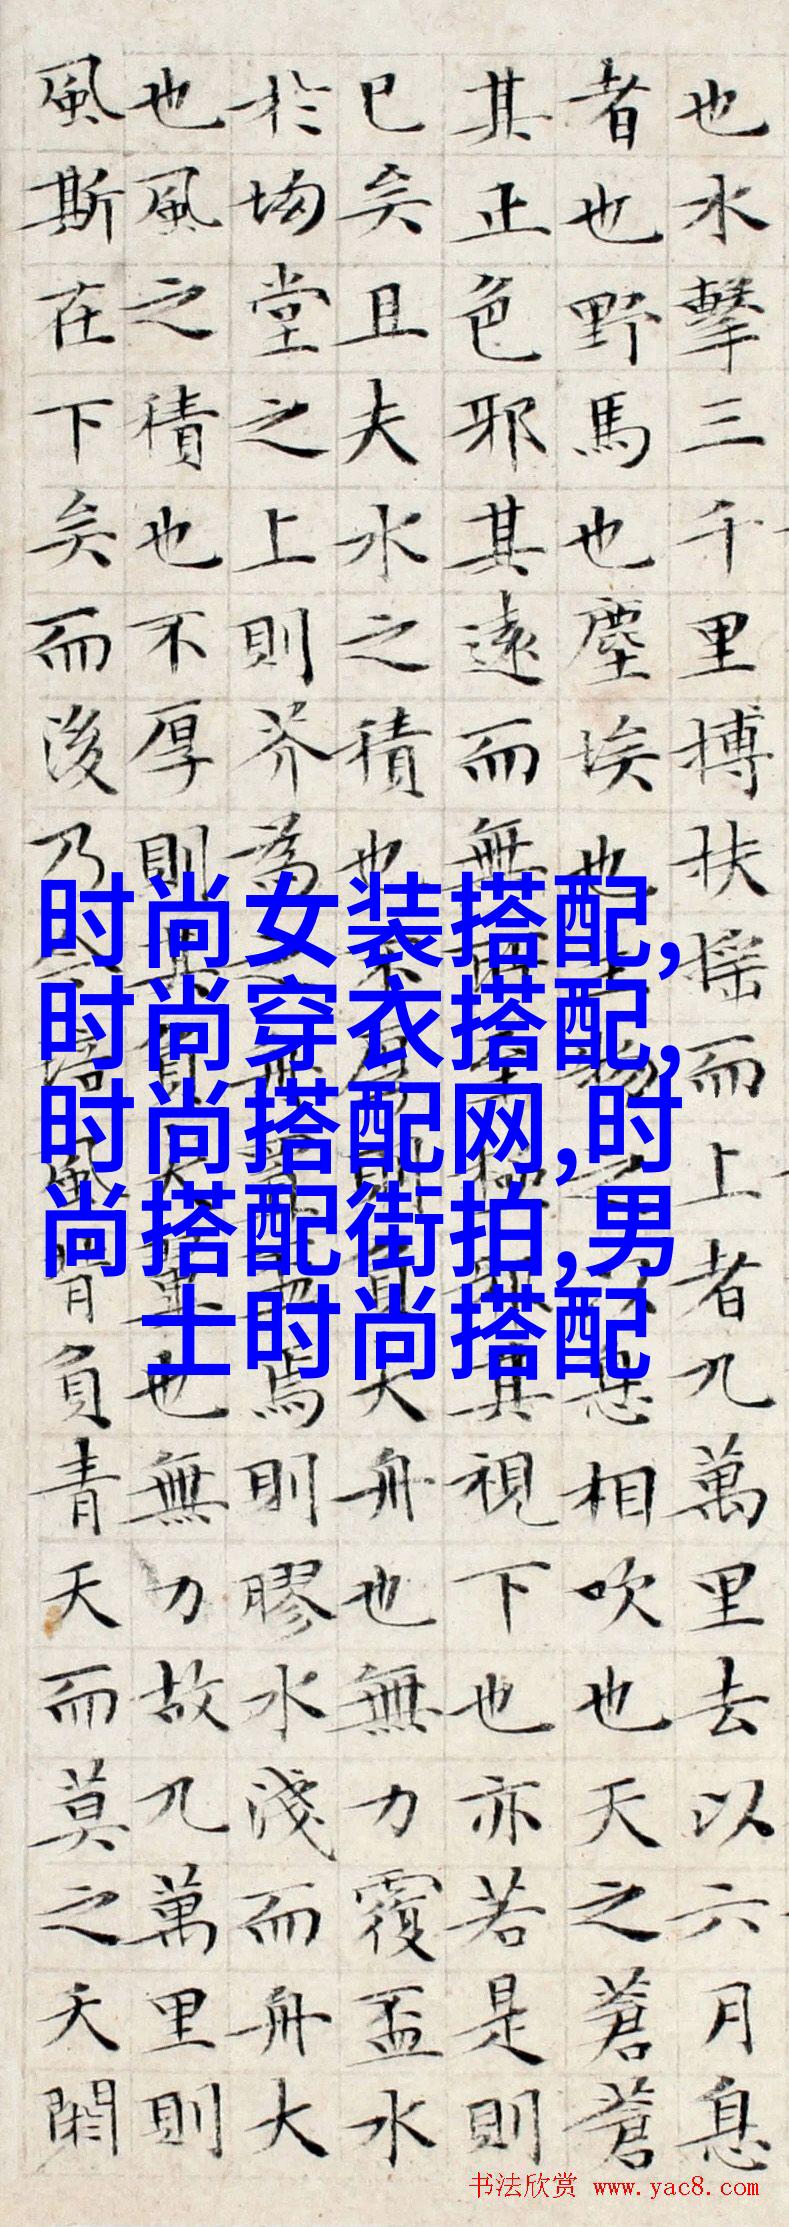 也水擊三千里搏扶摇而上者九萬里去以六月息
者也野馬也塵埃也物之以息相吹也天之蒼蒼
其正色邪其遠而無所至極其視下也亦若是則
已矣且夫水之積也不厚則負大舟也無力覆盃水
於坳堂之上則芥為之焉則膠水淺而舟大
也風之積也不厚則其負大翼也無力故九萬里則
風斯在下矣而後乃今培風背負青天而莫之夭閼
时尚女装搭配,
时尚穿衣搭配,
时尚搭配网,时
尚搭配街拍,男
士时尚搭配
书法欣赏 www.yac8.com